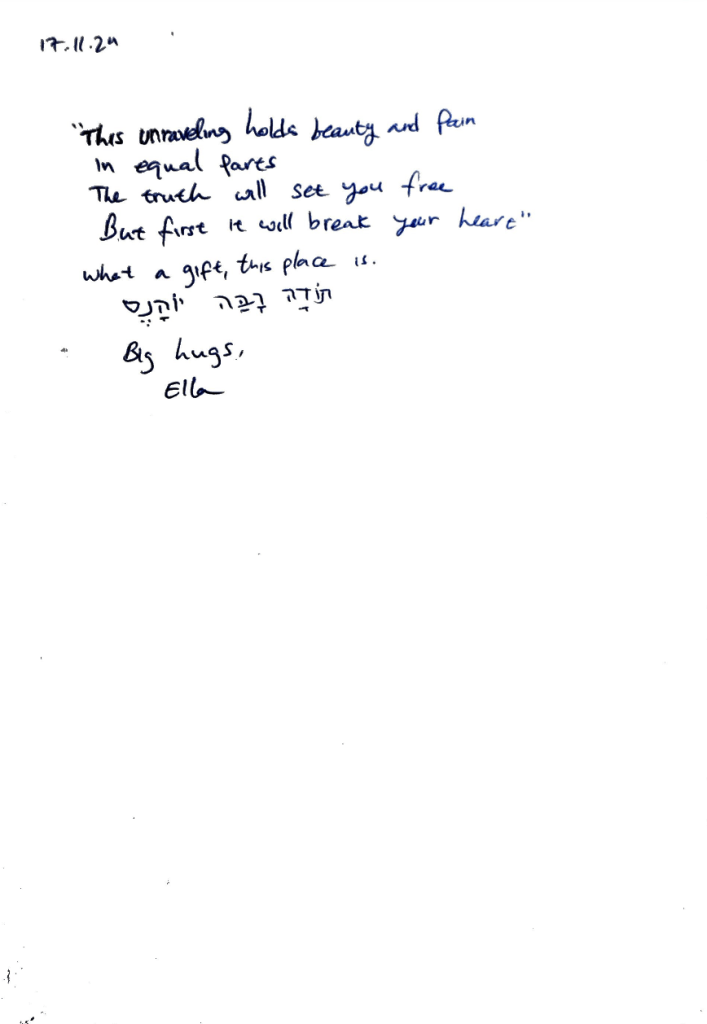 17.11.24
"This unraveling holds beauty and pain
in equal parts
The truth will set you free
But first it will break your heart"
what a gift, this place is.
תּוֹדָה רַבָּה יוֹהָנֶס
Big hugs,
Ella